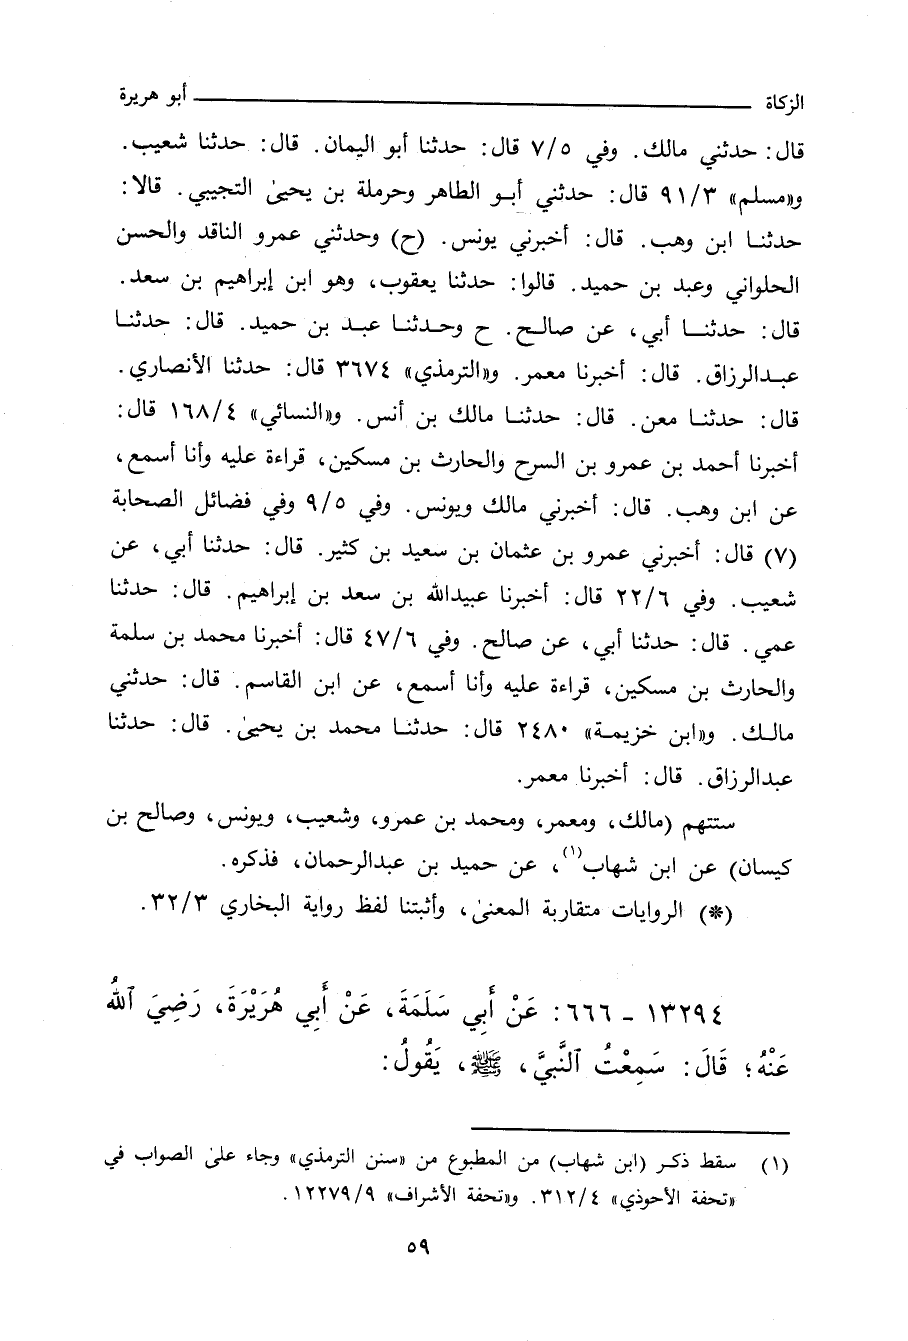 الزكاة أبو هريرة
قال: حدثني مالك. وفي ٧/٥ قال: حدثنا أبو اليمان. قال: حدثنا شعيب.
و«مسلم» ٩١/٣ قال: حدثني أبو الطاهر وحرملة بن يحيىٰ التجيبي. قالا:
حدثنا ابن وهب. قال: أخبرني يونس. (ح) وحدثني عمرو الناقد والحسن
الحلواني وعبد بن حميد. قالوا: حدثنا يعقوب، وهو ابن إبراهيم بن سعد.
قال: حدثنا أبي، عن صالح. ح وحدثنا عبد بن حميد. قال: حدثنا
عبدالرزاق. قال: أخبرنا معمر. و«الترمذي» ٣٦٧٤ قال: حدثنا الأنصاري.
قال: حدثنا معن. قال: حدثنا مالك بن أنس. و«النسائي» ١٦٨/٤ قال:
أخبرنا أحمد بن عمرو بن السرح والحارث بن مسكين، قراءة عليه وأنا أسمع،
عن ابن وهب. قال: أخبرني مالك ويونس. وفي ٩/٥ وفي فضائل الصحابة
(٧) قال: أخبرني عمرو بن عثمان بن سعيد بن كثير. قال: حدثنا أبي، عن
شعيب. وفي ٢٢/٦ قال: أخبرنا عبيدالله بن سعد بن إبراهيم. قال: حدثنا
عمي. قال: حدثنا أبي، عن صالح. وفي ٤٧/٦ قال: أخبرنا محمد بن سلمة
والحارث بن مسكين، قراءة عليه وأنا أسمع، عن ابن القاسم. قال: حدثني
مالك. و«ابن خزيمة» ٢٤٨٠ قال: حدثنا محمد بن يحيىٰ. قال: حدثنا
عبدالرزاق. قال: أخبرنا معمر.
ستتهم (مالك، ومعمر، ومحمد بن عمرو، وشعيب، ويونس، وصالح بن
كيسان) عن ابن شهاب(١)، عن حميد بن عبدالرحمان، فذكره.
(*) الروايات متقاربة المعنىٰ، وأثبتنا لفظ رواية البخاري ٣٢/٣.
١٣٢٩٤ ـ ٦٦٦: عَنْ أَبِي سَلَمَةَ، عَنْ أَبِي هُرَيْرَةَ، رَضِيَ ٱللهُ
عَنْهُ؛ قَالَ: سَمِعْتُ ٱلنَّبِيَّ، ﷺ، يَقُولُ:
(١) سقط ذكر (ابن شهاب) من المطبوع من «سنن الترمذي» وجاء علىٰ الصواب في
«تحفة الأحوذي» ٣١٢/٤. و«تحفة الأشراف» ١٢٢٧٩/٩.
٥٩